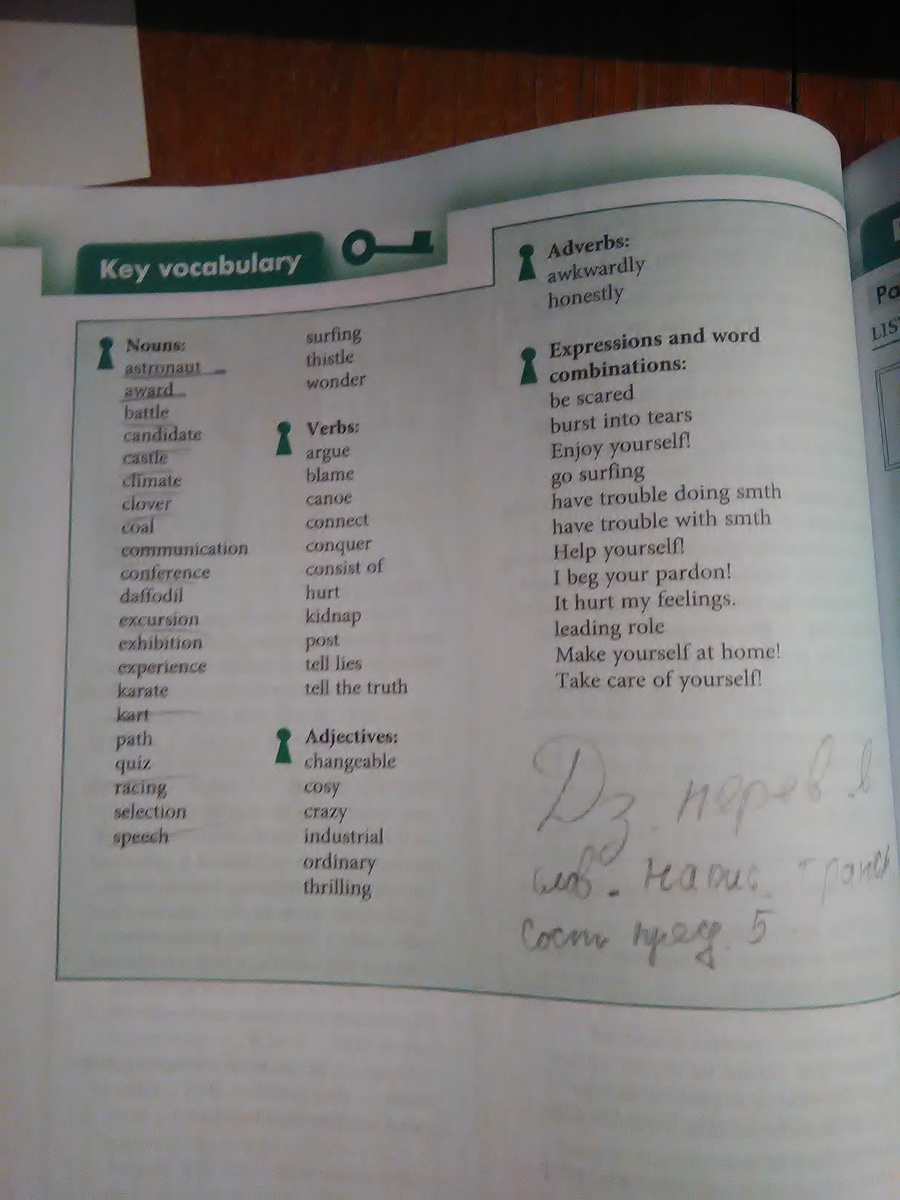 Key vocabulary
Nouns:
astronaut
award
battle
candidate
castle
climate
clover
coal
communication
conference
daffodil
excursion
exhibition
experience
karate
kart
path
quiz
racing
selection
speech
surfing
thistle
wonder
Verbs:
argue
blame
canoe
connect
conquer
consist of
hurt
kidnap
post
tell lies
tell the truth
Adjectives:
changeable
cosy
crazy
industrial
ordinary
thrilling
Adverbs:
awkwardly
honestly
Expressions and word
combinations:
be scared
burst into tears
Enjoy yourself!
go surfing
have trouble doing smth
have trouble with smth
Help yourself!
I beg your pardon!
It hurt my feelings.
leading role
Make yourself at home!
Take care of yourself!
Дз. перев в
слов. напис транс
сост пред. 5
Pa
LIS